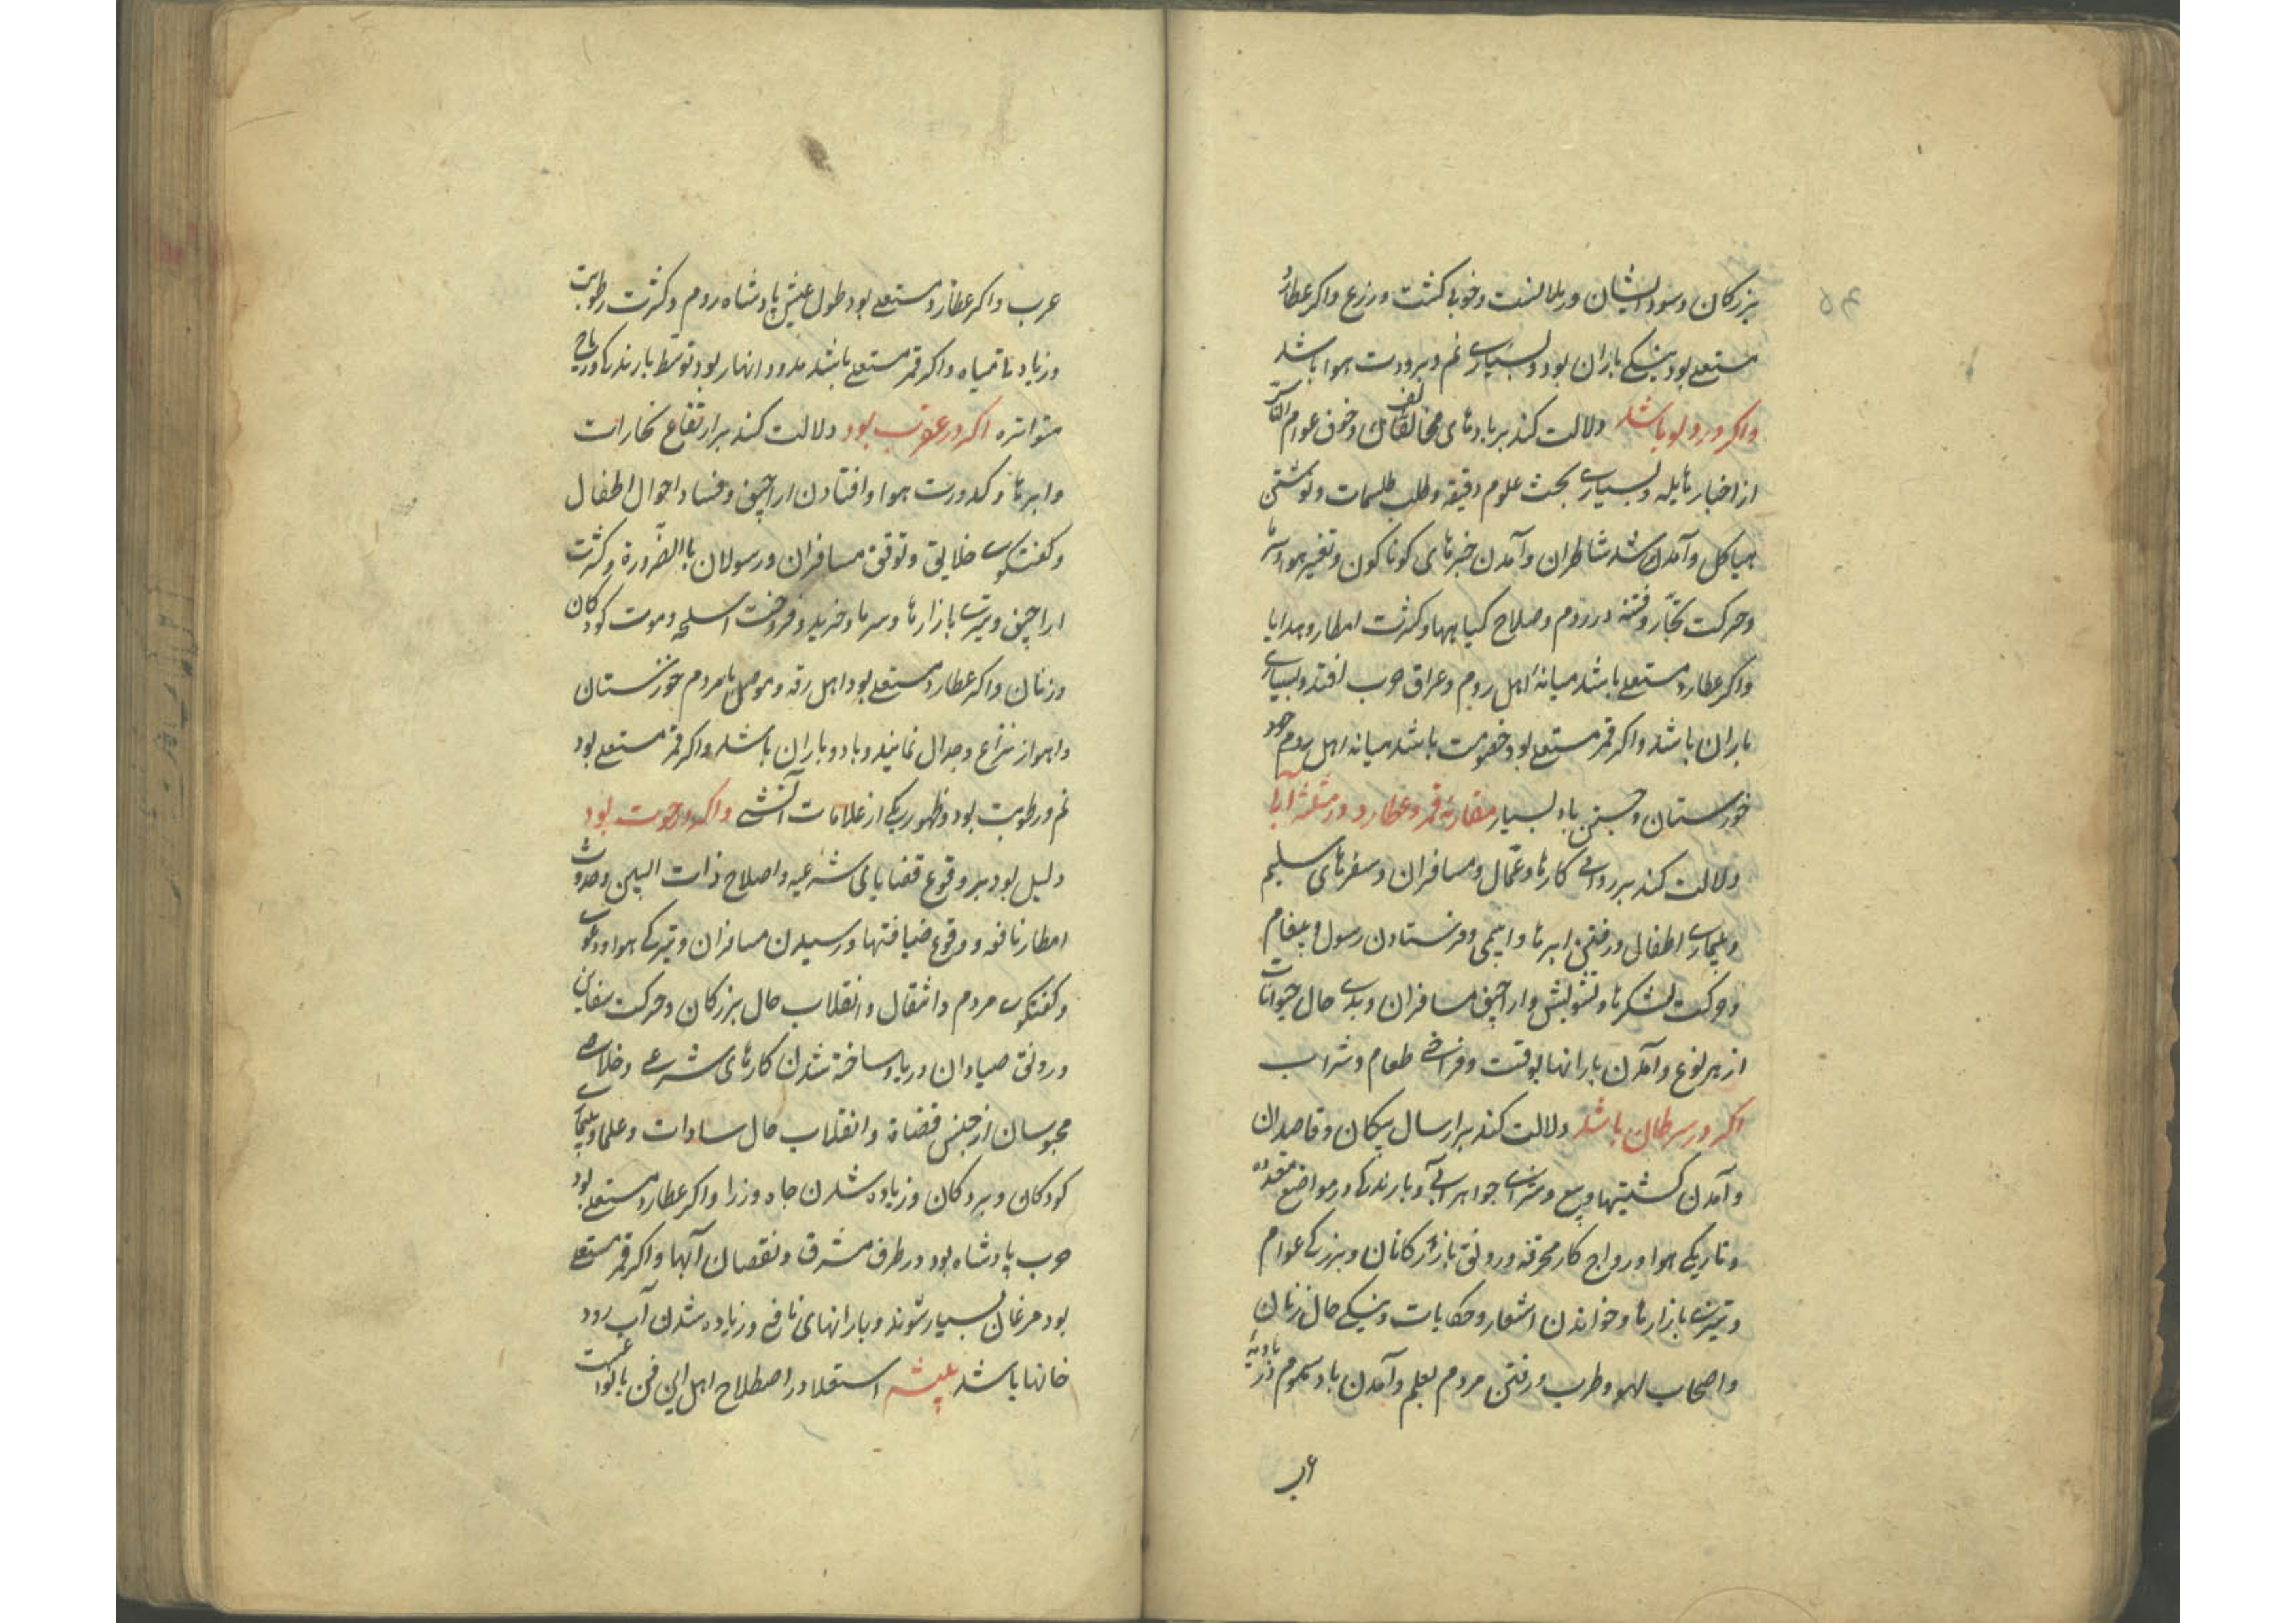 بزرکان وسود ایشان در ملامنت وخوبی کشت وزرع واکر عطارد
مستعلے بود نیکے باران بود وبسیارے نم وبرودت هوا باشد
واکر در دلو باشد دلالت کند بر بادهای مخالف وخوف عوام الناس
از اخبار هایله وبسیارے بحث علوم دقیقه وطلب طلسمات ونوشتن
هیاکل وآمدن شاطران وآمدن خبرهای کوناکون وتغیر هوا وسرما
وحرکت تجار وفتنه در روم وصلاح کیاهها وکثرت امطار وهدایا
واکر عطارد مستعلے باشد میانهٔ اهل روم وعراق حرب افتد وبسیارے
باران باشد واکر قمر مستعلے بود خصومت باشد میانه اهل روم وحد
خوزستان وجستن باد بسیار مقارنهٔ قمر وعطارد در مثلثهٔ آبے
دلالت کند بر روائے کارها وعمال ومسافران وسفرهای سلیم
وبیمارے اطفال ورفتن ابرها وایلچی وفرستادن رسول وپیغام
وحرکت لشکرها وتشویش واراجیف مسافران وبدے حال حیوانات
از هر نوع وآمدن بارانها بوقت وفراخے طعام وشراب
اکر در سرطان باشد دلالت کند بر ارسال پیکان وقاصدان
وآمدن کشتیها وبیع وشراے جواهر آبے وبارندکے در مواضع متعدده
وتاریکے هوا ورواج کار محرقه ورونق بازارکانان وبزرکے عوام
وتیزے بازارها وخواندن اشعار وحکایات ونیکے حال زنان
واصحاب لهو وطرب ورفتن مردم بعلم وآمدن باد سموم در بادیهٔ
عرب
عرب واکر عطارد مستعلے بود طول عیش پادشاه روم وکثرت رطوبت
وزیادتے میاه واکر قمر مستعلے باشد مدود انهار بود وتوسط بارندکے وریاح
متواتره اکر در عقرب بود دلالت کند بر ارتفاع بخارات
وابرها وکدورت هوا وافتادن اراجیف وفساد احوال اطفال
وکفتکوے خلایق وتوقف مسافران ورسولان باالضرورة وکثرت
اراجیف وتیزے بازارها وسرما وخرید وفروخت اسلحه وموت کودکان
وزنان واکر عطارد مستعلے بود اهل رقه وموصل با مردم خوزستان
واهواز نزاع وجدال نمایند وباد وباران باشد واکر قمر مستعلے بود
نم ورطوبت بود وظهور یکے از علامات آتشے واکر در حوت بود
دلیل بود بر وقوع قضایای شرعیه واصلاح ذات البین وحدوث
امطار نافعه ووقوع ضیافتها ورسیدن مسافران وتیرکے هوا ودعوے
وکفتکوے مردم وانتقال وانقلاب حال بزرکان وحرکت سفاین
ورونق صیادان دریا وساخته شدن کارهای شرعے وخلاصے
محبوسان از جنس قضاة وانقلاب حال سادات وعلما وبیمارے
کودکان وبردکان وزیاده شدن جاه وزرا واکر عطارد مستعلے بود
حرب پادشاه بود در طرف مشرق ونقصان آبها واکر قمر مستعلے
بود مرغان بسیار شوند وبارانهای نافع وزیاده شدن آب رود
خانها باشد استعلا در اصطلاح اهل این فن بانواعست